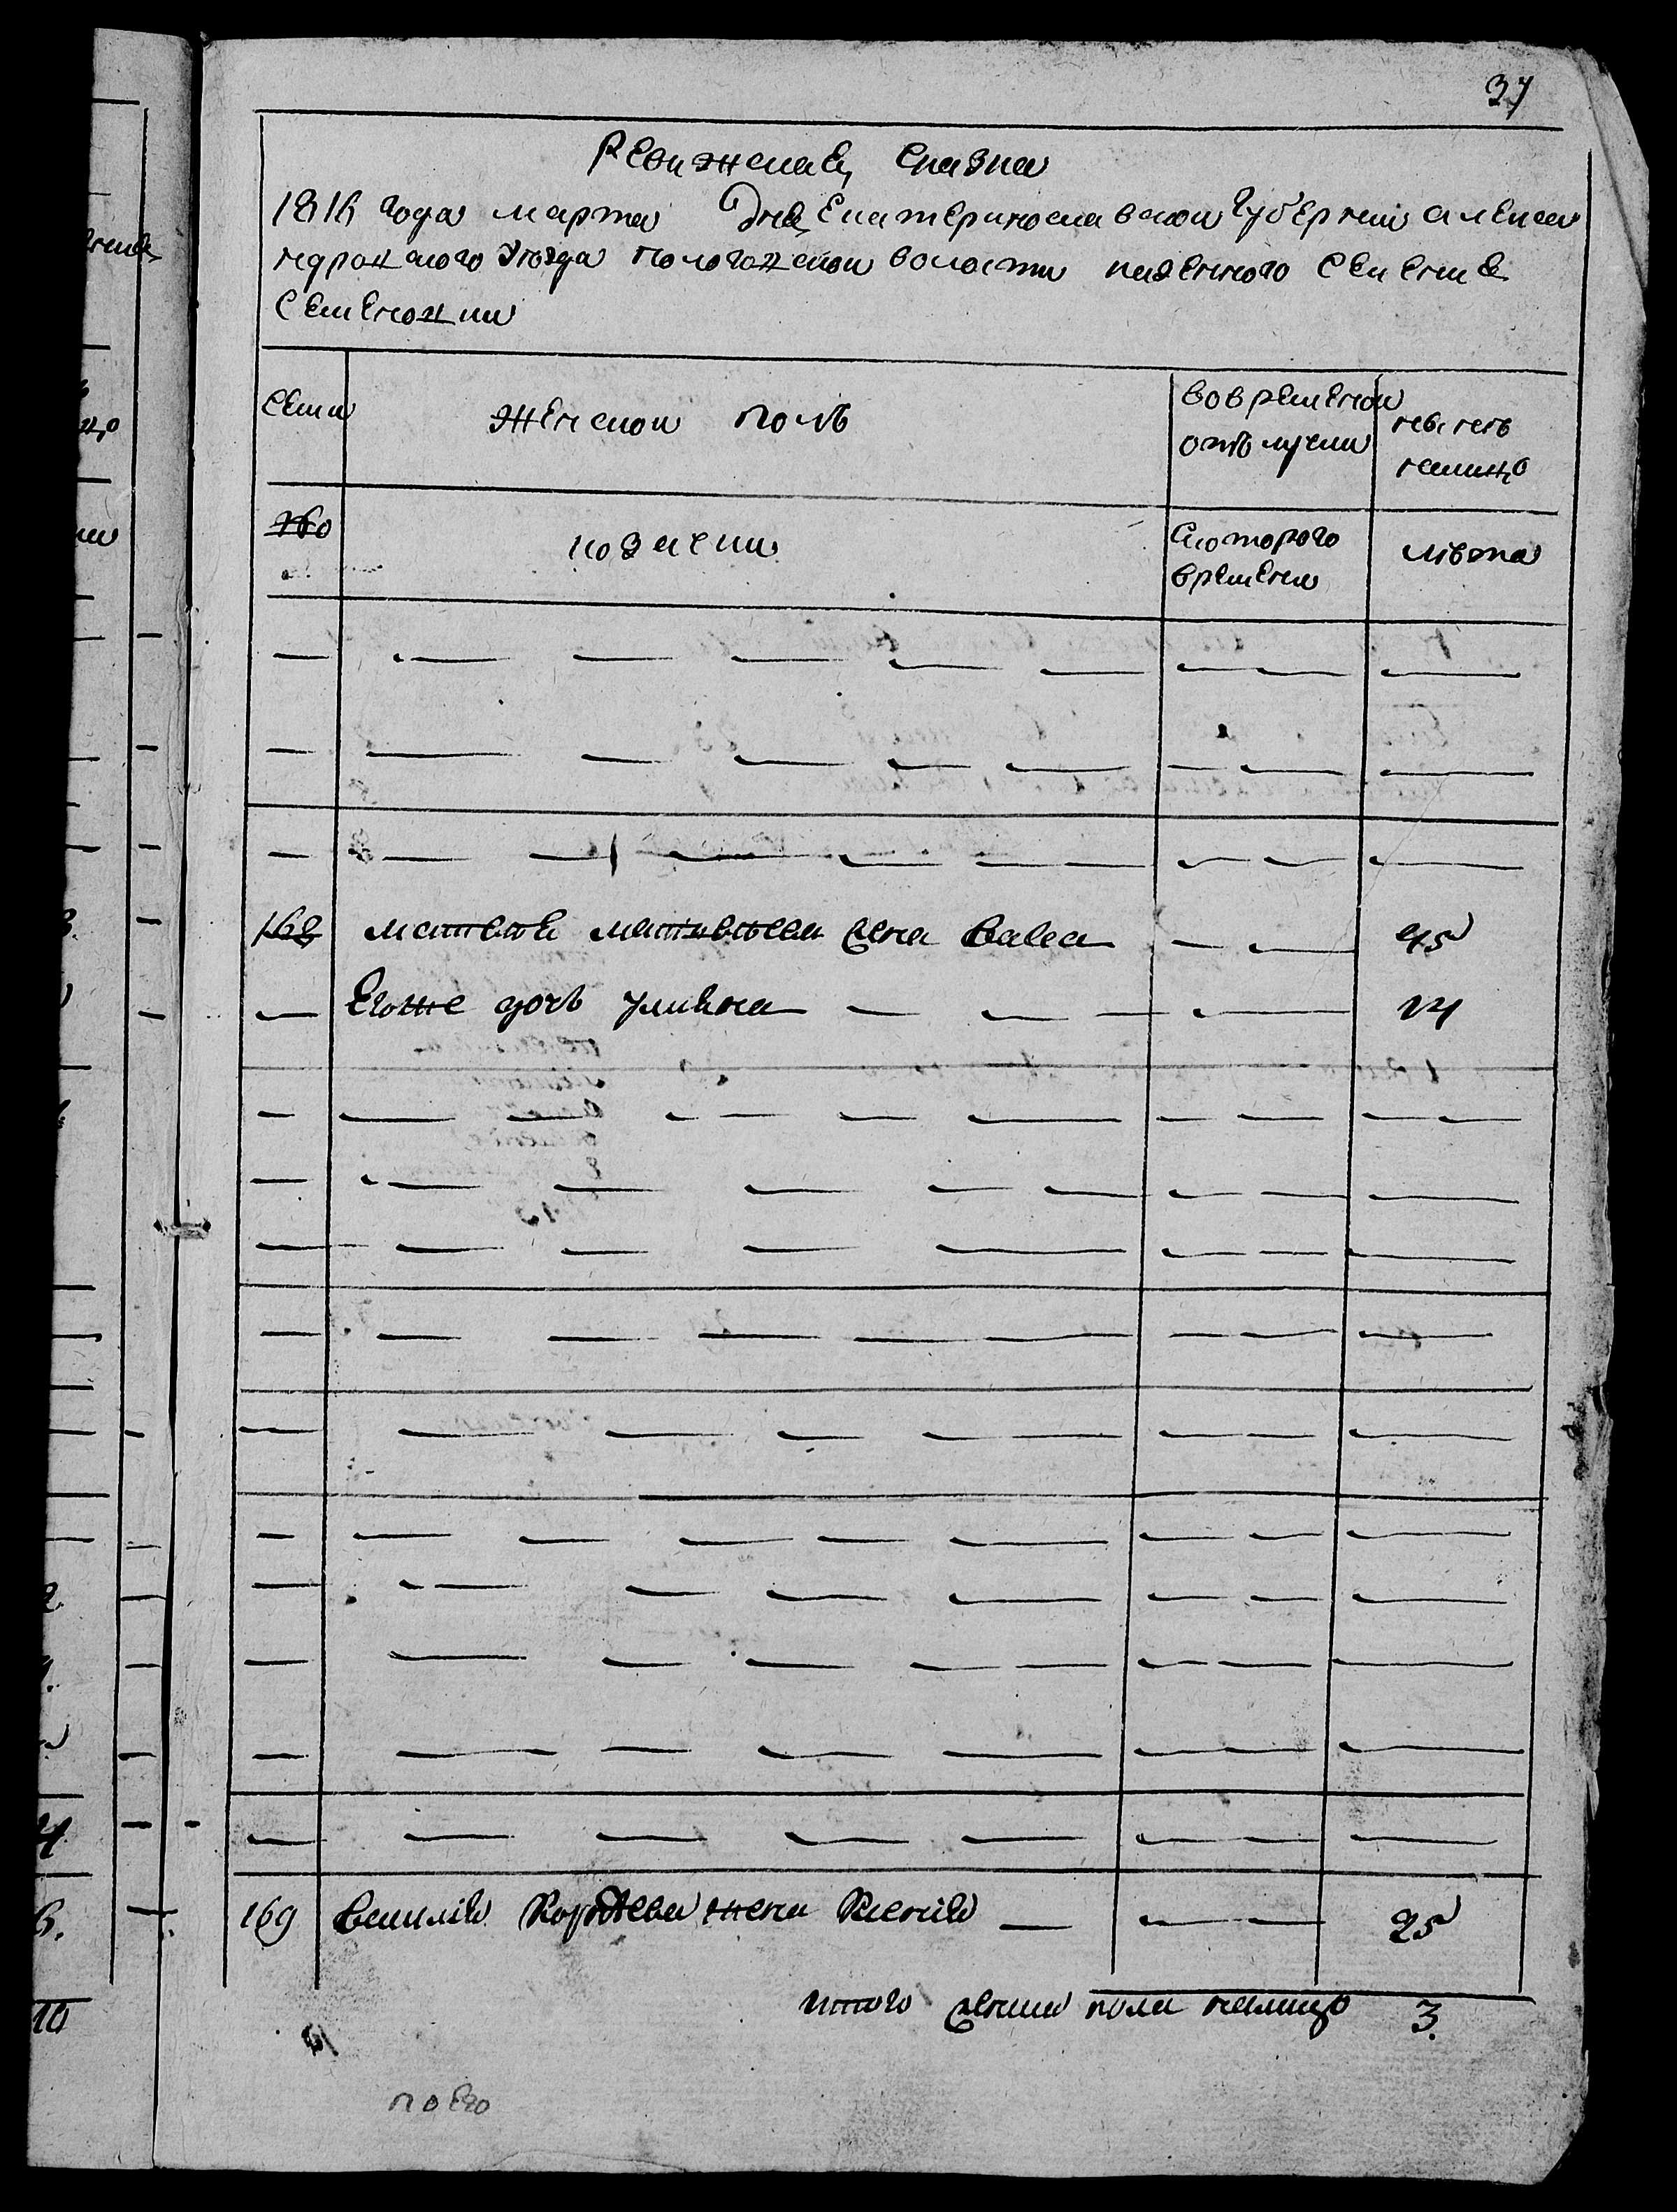 37
Ревижская сказка
1816 года марта дня Екатеринославской Губернии алекса
ндровского уезда пологовской волости казенного Селения
Семеновки
Семи
женской полъ
вовременой
отълучки
ныне
налицо
козаки
скоторого
времени
лѣта
168 матвея матвѣева жена Васса 45
Егоже дочь улияна 14
169 Василия жена Ксения 25
итого женска пола налицо 3.